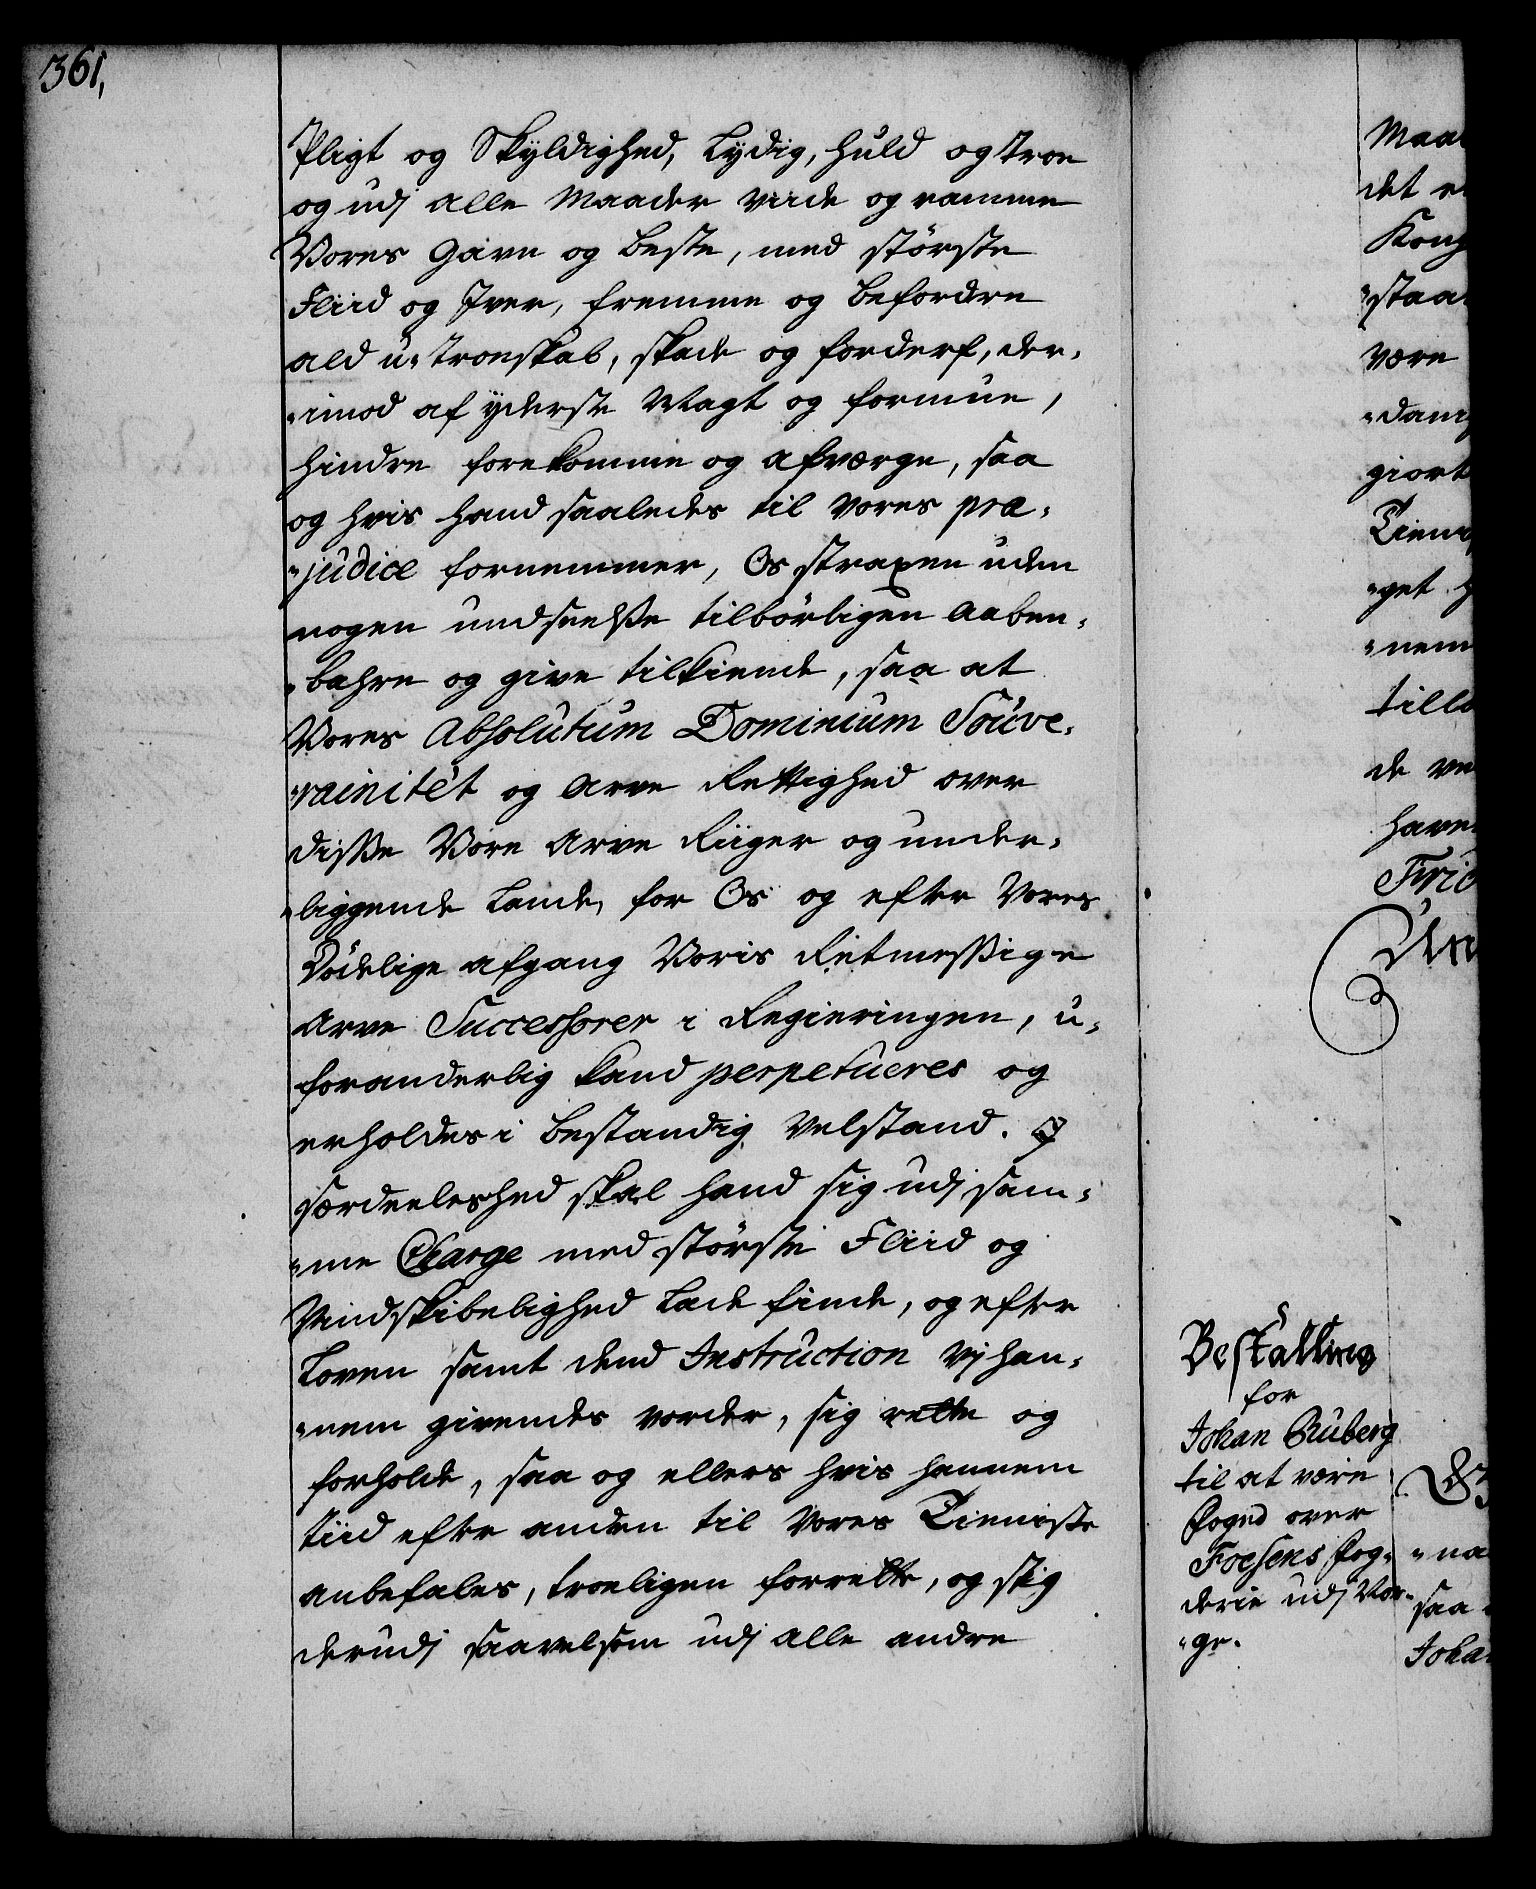 361,
Pligt og Skyldighed, Lydig, huld og troe
og udj alle Maader viide og ramme
Vores Gavn og beste, med største
Fliid og Iver, fremme og befordre
ald u-troeskab, skade og forderf, der-
-imod af yderste Magt og formue,
hindre forekomme og afværge, saa
og hvis hand saaledes til vores præ-
-judice fornemmer, Os straxen uden
nogen undseelse tilbørligen aaben-
-bahre og give tilkiende, saa at
Vores Absolutum Dominium Souve-
-rainitét og Arve Rettighed over
disse Vore Arve Riiger og under-
-liggende Lande, for Os og efter Vores
Dødelige afgang Voris Retmessige
Arve Successorer i Regieringen, u-
foranderlig kand perpetueres og
erholdes i bestandig Velstand. I
særdeeleshed skal hand sig udj sam-
-me Charge med største Fliid og
Vindskibelighed lade finde, og efter
Loven samt dend Instruction vj han-
-nem givendes vorder, sig rette og
forholde, saa og ellers hvis hannem
tiid efter anden til Vores Tieniste
anbefales, troeligen forrette, og sig
derudj saavelsom udj alle andre
Maa
det e
Kong
-staa
være
-dan
giort
Tiene
-get
-nem
till
de ve
have
Frid
Bestalling
for
Johan Ruberg
til at være
Foged over
Foesens Fog-
derie udj Nor-
-ge.
-na
saa
Joha